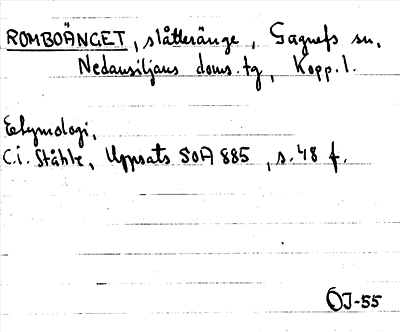 ROMBOÄNGET, slåtteränge, Gagnefs sn,
Nedansiljans doms.tg, Kopp.l.
Etymologi,
C.I. Ståhle, Uppsats SOA 885, s. 48 f.
ÖJ-55